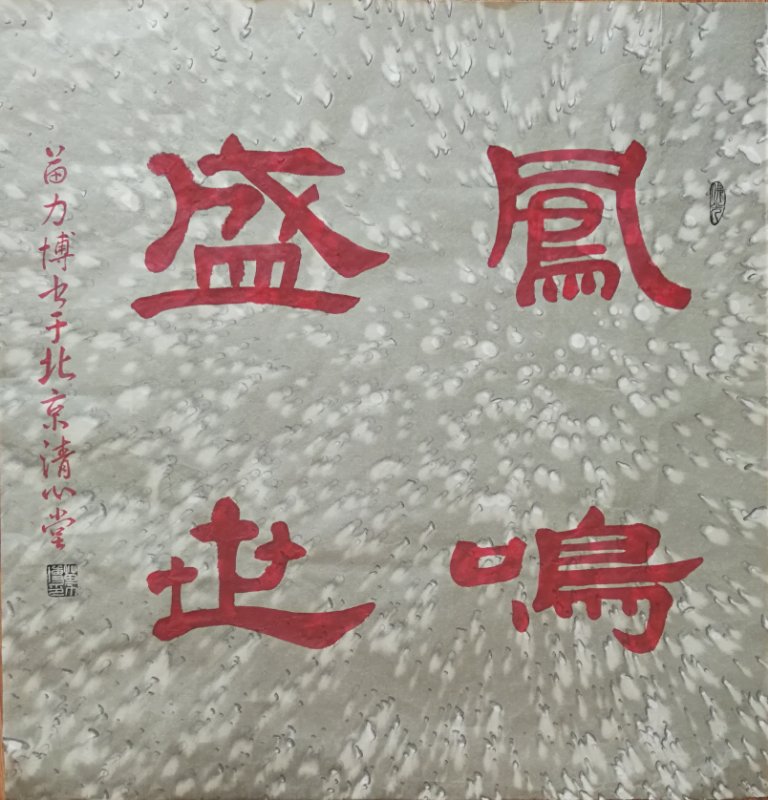 鳳鳴
盛世
苗力博书于北京清心堂